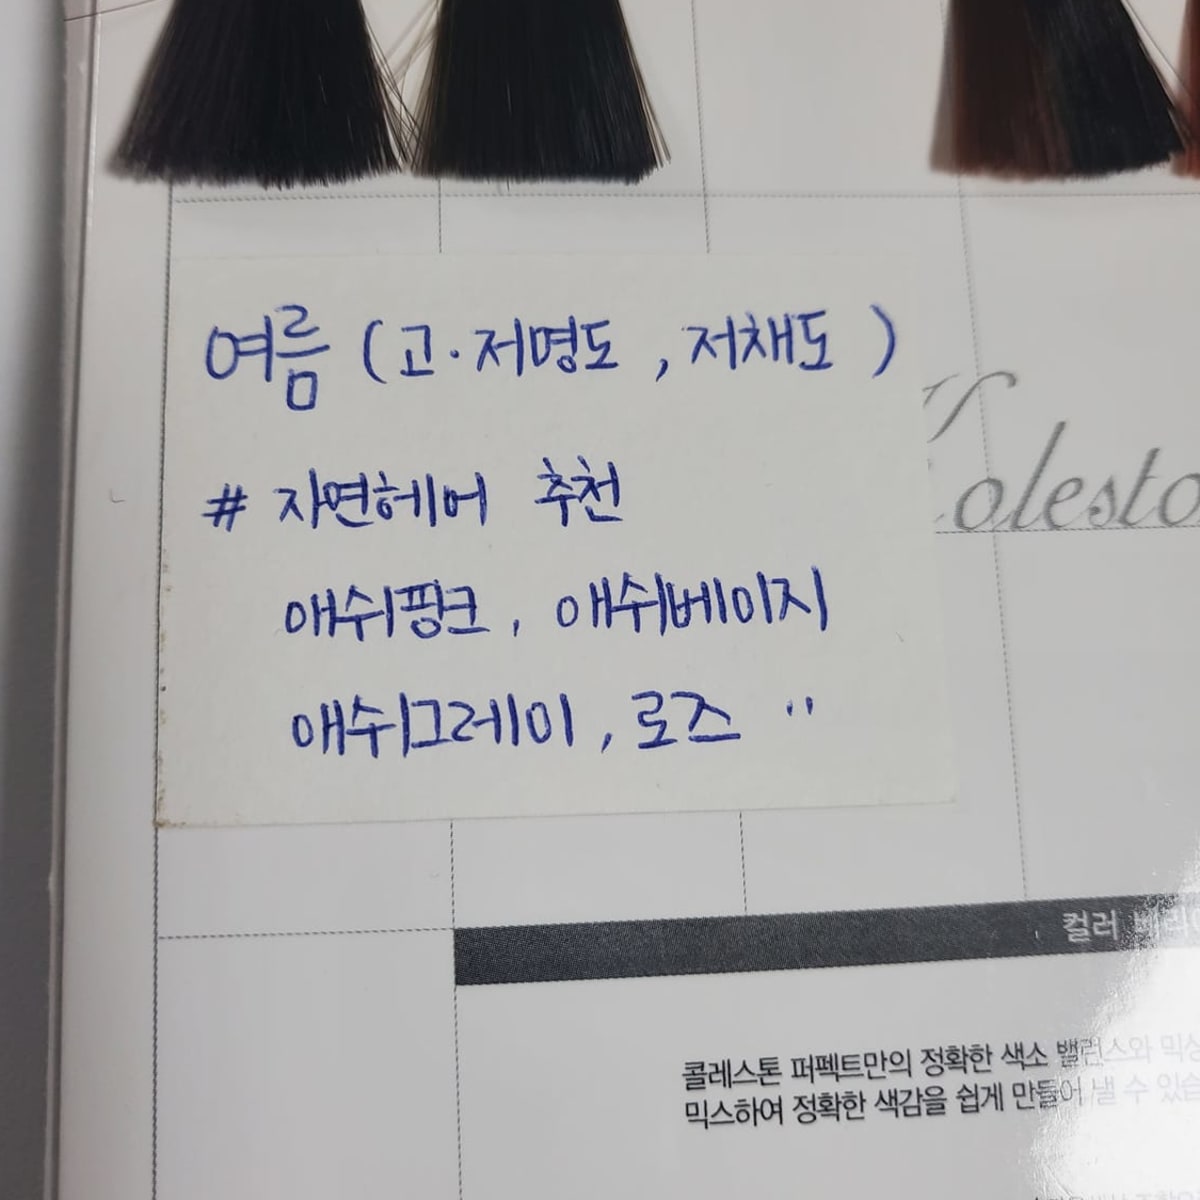 여름 (고·저명도, 저채도)
# 자연헤어 추천
애쉬핑크, 애쉬베이지
애쉬그레이, 로즈 "
olesto
컬러
콜레스톤 퍼펙트만의 정확한 색소 밸런스와
믹스하여 정확한 색감을 쉽게 만들어 낼 수